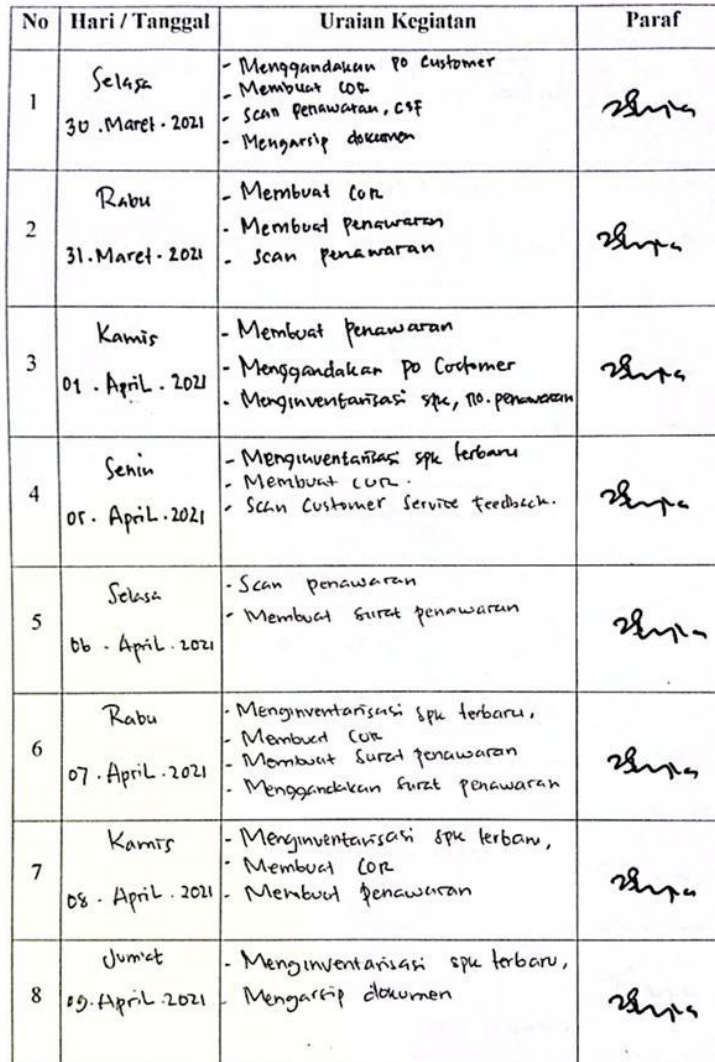 No Hari / Tanggal Uraian Kegiatan Paraf
1
Selasa
30 . Maret . 2021
- Menggandakan PO Customer
- Membuat COR
- Scan Penawaran, CSF
- Mengarsip dokumen
2
Rabu
31 . Maret . 2021
- Membuat COR
- Membuat Penawaran
- Scan penawaran
3
Kamis
01 . April . 2021
- Membuat Penawaran
- Menggandakan PO Costomer
- Menginventarisasi spk, no. penawaran
4
Senin
05 . April . 2021
- Menginventarisasi spk terbaru
- Membuat COR.
- Scan Customer Service Feedback.
5
Selasa
06 . April . 2021
- Scan penawaran
- Membuat surat penawaran
6
Rabu
07 . April . 2021
- Menginventarisasi spk terbaru,
- Membuat COR
- Membuat Surat penawaran
- Menggandakan surat penawaran
7
Kamis
08 . April . 2021
- Menginventarisasi spk terbaru,
- Membuat COR
- Membuat penawaran
8
Jum'at
09 . April . 2021
- Menginventarisasi spk terbaru,
- Mengarsip dokumen